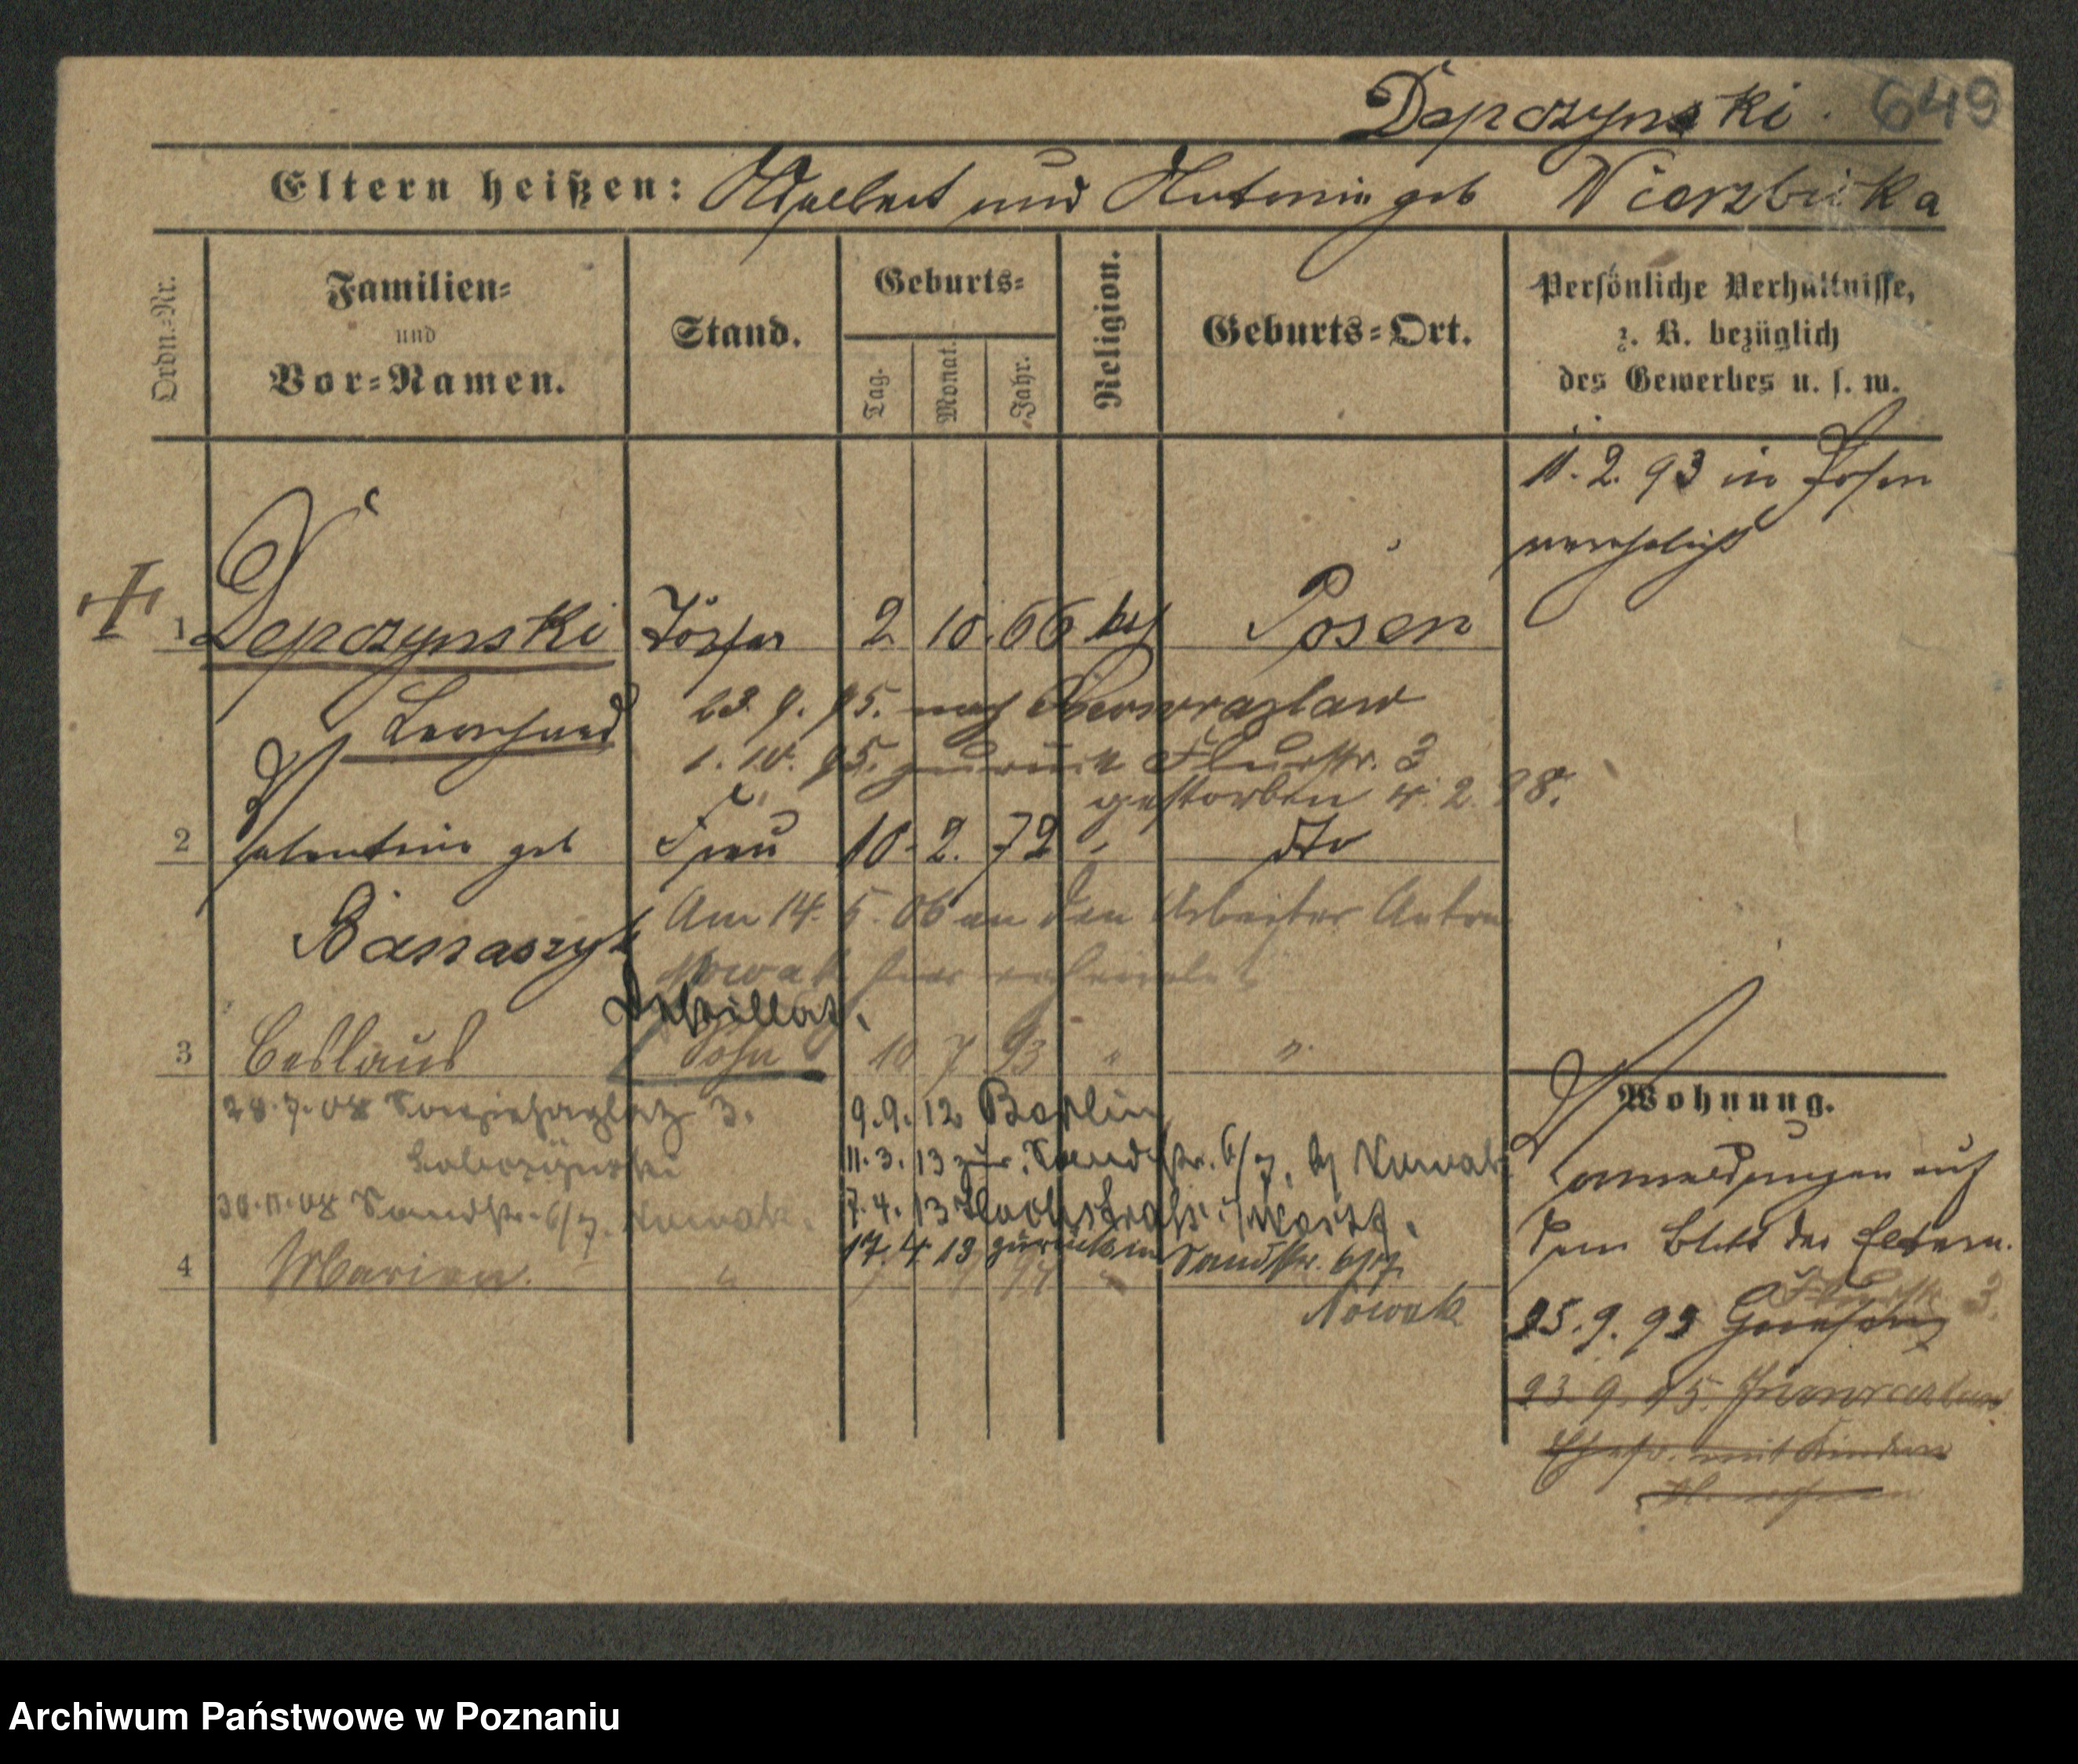 Depczynski. 649
Eltern heißen: Adalbert und Antonie geb Wierzbicka
Ordn.-Nr.
Familien-
und
Vor-Namen.
Stand.
Geburts-
Tag.
Monat.
Jahr.
Religion.
Geburts-Ort.
Persönliche Verhältnisse,
z. B. bezüglich
des Gewerbes u. s. w.
11. 2. 93 in Posen
verehelicht
1 Depczynski Töpfer 2 10. 66 kath Posen
Leonhard
23. 9. 95. nach Inowrazlaw
1. 10. 95. zurück Flurstr. 3
gestorben 4. 2. 98.
2 Valentine geb Frau 10. 2. 72 " dto
Banaszyk
Am 14. 5. 06 an den Arbeiter Anton
Nowak hier
Destillat.
3 Ceslaus Sohn 10 7 93 " "
28. 7. 08 3.
30. 11. 08 Sandstr. 6/7. Nowak.
9. 9. 12 Berlin
11. 3. 13 zur. Sandstr. 6/7, bei Nowak
7. 4. 13
17. 4. 13 zurück in Sandstr. 6/7
Nowak
4 Marian. " 94 "
Wohnung.
Anmeldungen auf
dem Blatt der Eltern.
Flurstr. 3.
25. 9. 93
23. 9. 95. Inowrazlaw
Ehefr. mit Kindern
Archiwum Państwowe w Poznaniu